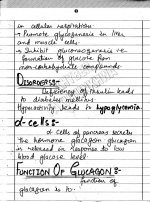 in cellular respiration.
→ Promote glycogenesis in liver
and muscle cells.
→ Inhibit gluconeogenesis ie
formation of glucose from
non carbohydrate compounds.
DISORDERS:-
Deficiency of insulin leads
to diabetes mellitus.
Hyperactivity leads to hypoglycemia
α-cells:-
α cells of pancreas secrete
the hormone glucagon. glucagon
is released in response to low
blood glucose level.
FUNCTION OF GLUCAGON:-
function of
glucagon is to:-